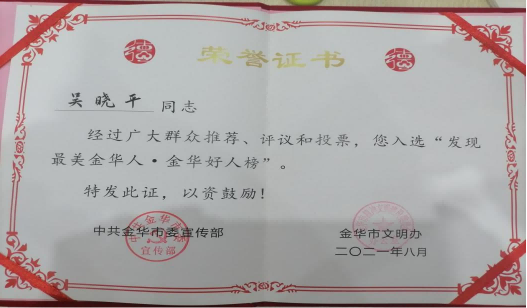 德 荣誉证书 德
吴晓平 同志
经过广大群众推荐、评议和投票，您入选“发现
最美金华人·金华好人榜”。
特发此证，以资鼓励！
中共金华市委宣传部 金华市文明办
宣传部
二〇二一年八月